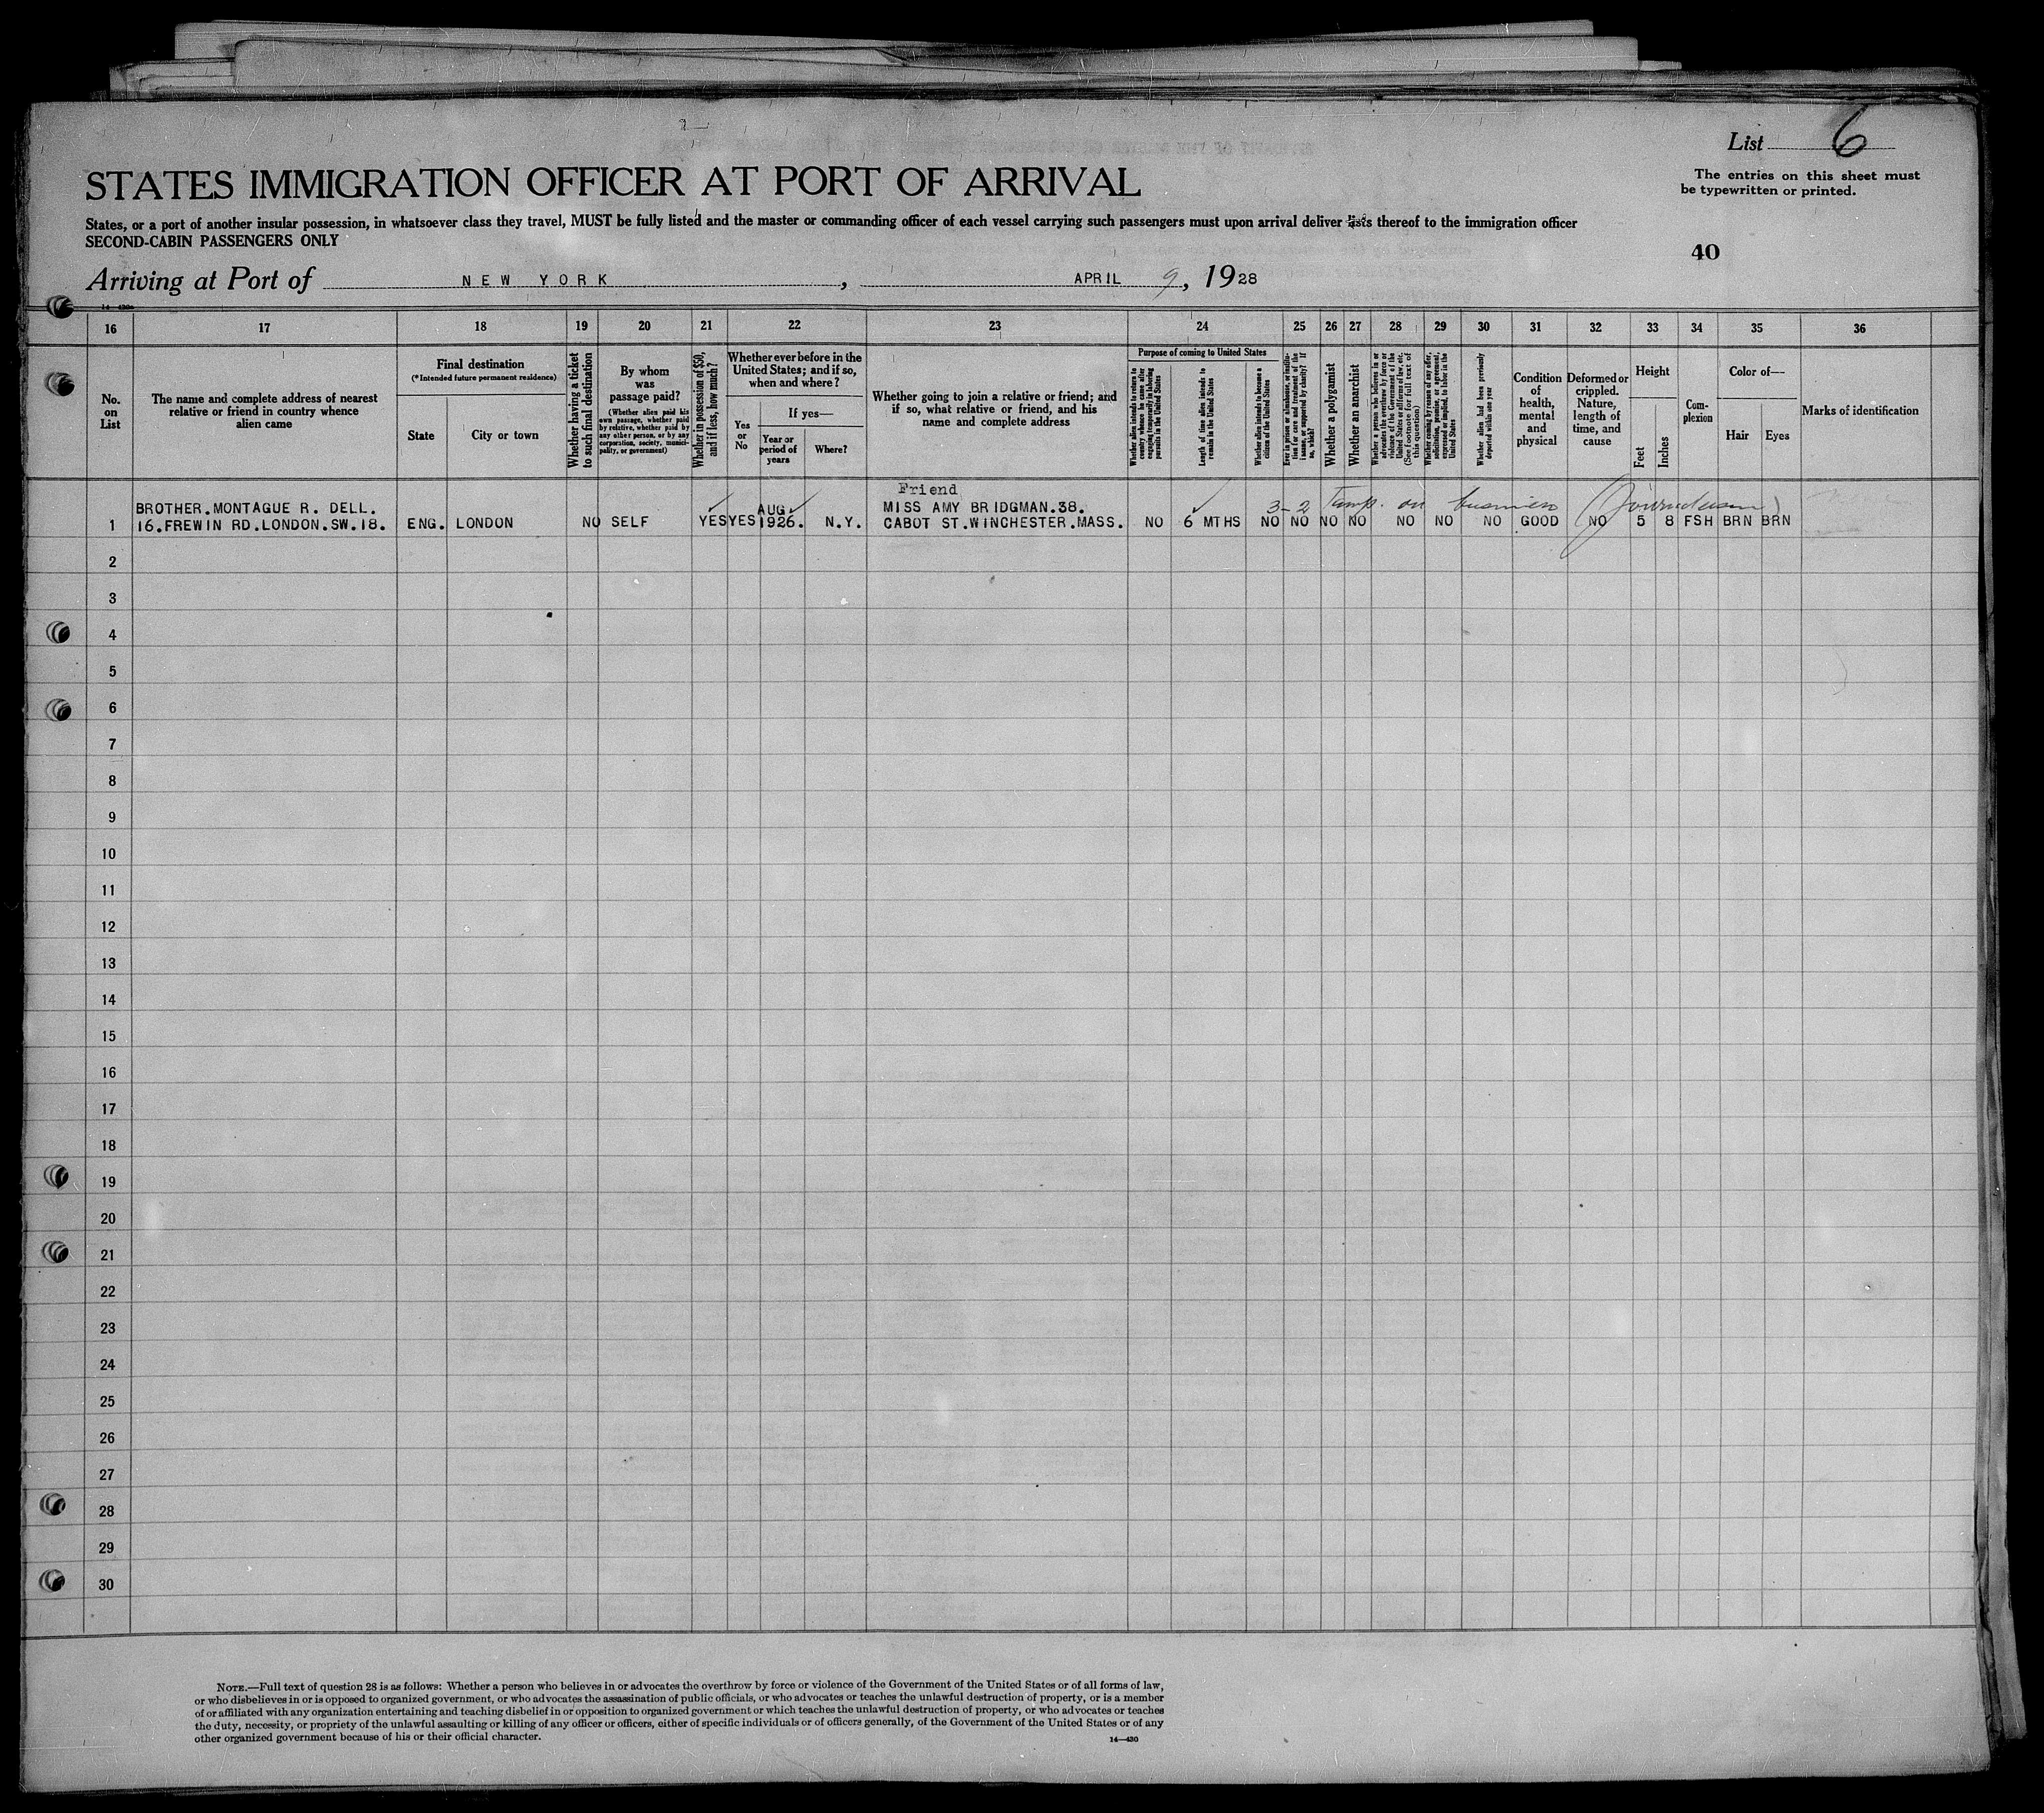 List 6
STATES IMMIGRATION OFFICER AT PORT OF ARRIVAL
The entries on this sheet must
be typewritten or printed.
States, or a port of another insular possession, in whatsoever class they travel, MUST be fully listed and the master or commanding officer of each vessel carrying such passengers must upon arrival deliver lists thereof to the immigration officer
SECOND-CABIN PASSENGERS ONLY
40
Arriving at Port of NEW YORK, APRIL 9, 1928
16 17 18 19 20 21 22 23 24 25 26 27 28 29 30 31 32 33 34 35 36
No.
on
List
The name and complete address of nearest
relative or friend in country whence
alien came
Final destination
(*Intended future permanent residence)
State
City or town
Whether having a ticket
to such final destination
By whom
was
passage paid?
(Whether alien paid his
own passage, whether paid
by relative, whether paid by
any other person, or by any
corporation, society, munici-
pality, or government)
Whether in possession of $50,
and if less, how much?
Whether ever before in the
United States; and if so,
when and where?
Yes
or
No
If yes—
Year or
period of
years
Where?
Whether going to join a relative or friend; and
if so, what relative or friend, and his
name and complete address
Purpose of coming to United States
Whether alien intends to return to
country whence he came after
engaging temporarily in laboring
pursuits in the United States
Length of time alien intends to
remain in the United States
Whether alien intends to become a
citizen of the United States
Ever in prison or almshouse, or institu-
tion for care and treatment of the
insane, or supported by charity? If
so, which?
Whether a polygamist
Whether an anarchist
Whether a person who believes in or
advocates the overthrow by force or
violence of the Government of the
United States or all forms of law, etc.
(See footnote for full text of
this question)
Whether coming by reason of any offer,
solicitation, promise, or agreement,
expressed or implied, to labor in the
United States
Whether alien had been previously
deported within one year
Condition
of
health,
mental
and
physical
Deformed or
crippled.
Nature,
length of
time, and
cause
Height
Feet
Inches
Com-
plexion
Color of—
Hair
Eyes
Marks of identification
Friend
BROTHER.MONTAGUE R. DELL. AUG MISS AMY BRIDGMAN.38. 3-2 Temp. on business
1 16.FREWIN RD.LONDON.SW.18. ENG. LONDON NO SELF YES YES 1926. N.Y. CABOT ST.WINCHESTER.MASS. NO 6 MTHS NO NO NO NO NO NO NO GOOD NO 5 8 FSH BRN BRN
2
3
4
5
6
7
8
9
10
11
12
13
14
15
16
17
18
19
20
21
22
23
24
25
26
27
28
29
30
NOTE.—Full text of question 28 is as follows: Whether a person who believes in or advocates the overthrow by force or violence of the Government of the United States or of all forms of law,
or who disbelieves in or is opposed to organized government, or who advocates the assassination of public officials, or who advocates or teaches the unlawful destruction of property, or is a member
of or affiliated with any organization entertaining and teaching disbelief in or opposition to organized government or which teaches the unlawful destruction of property, or who advocates or teaches
the duty, necessity, or propriety of the unlawful assaulting or killing of any officer or officers, either of specific individuals or of officers generally, of the Government of the United States or of any
other organized government because of his or their official character.
14—430